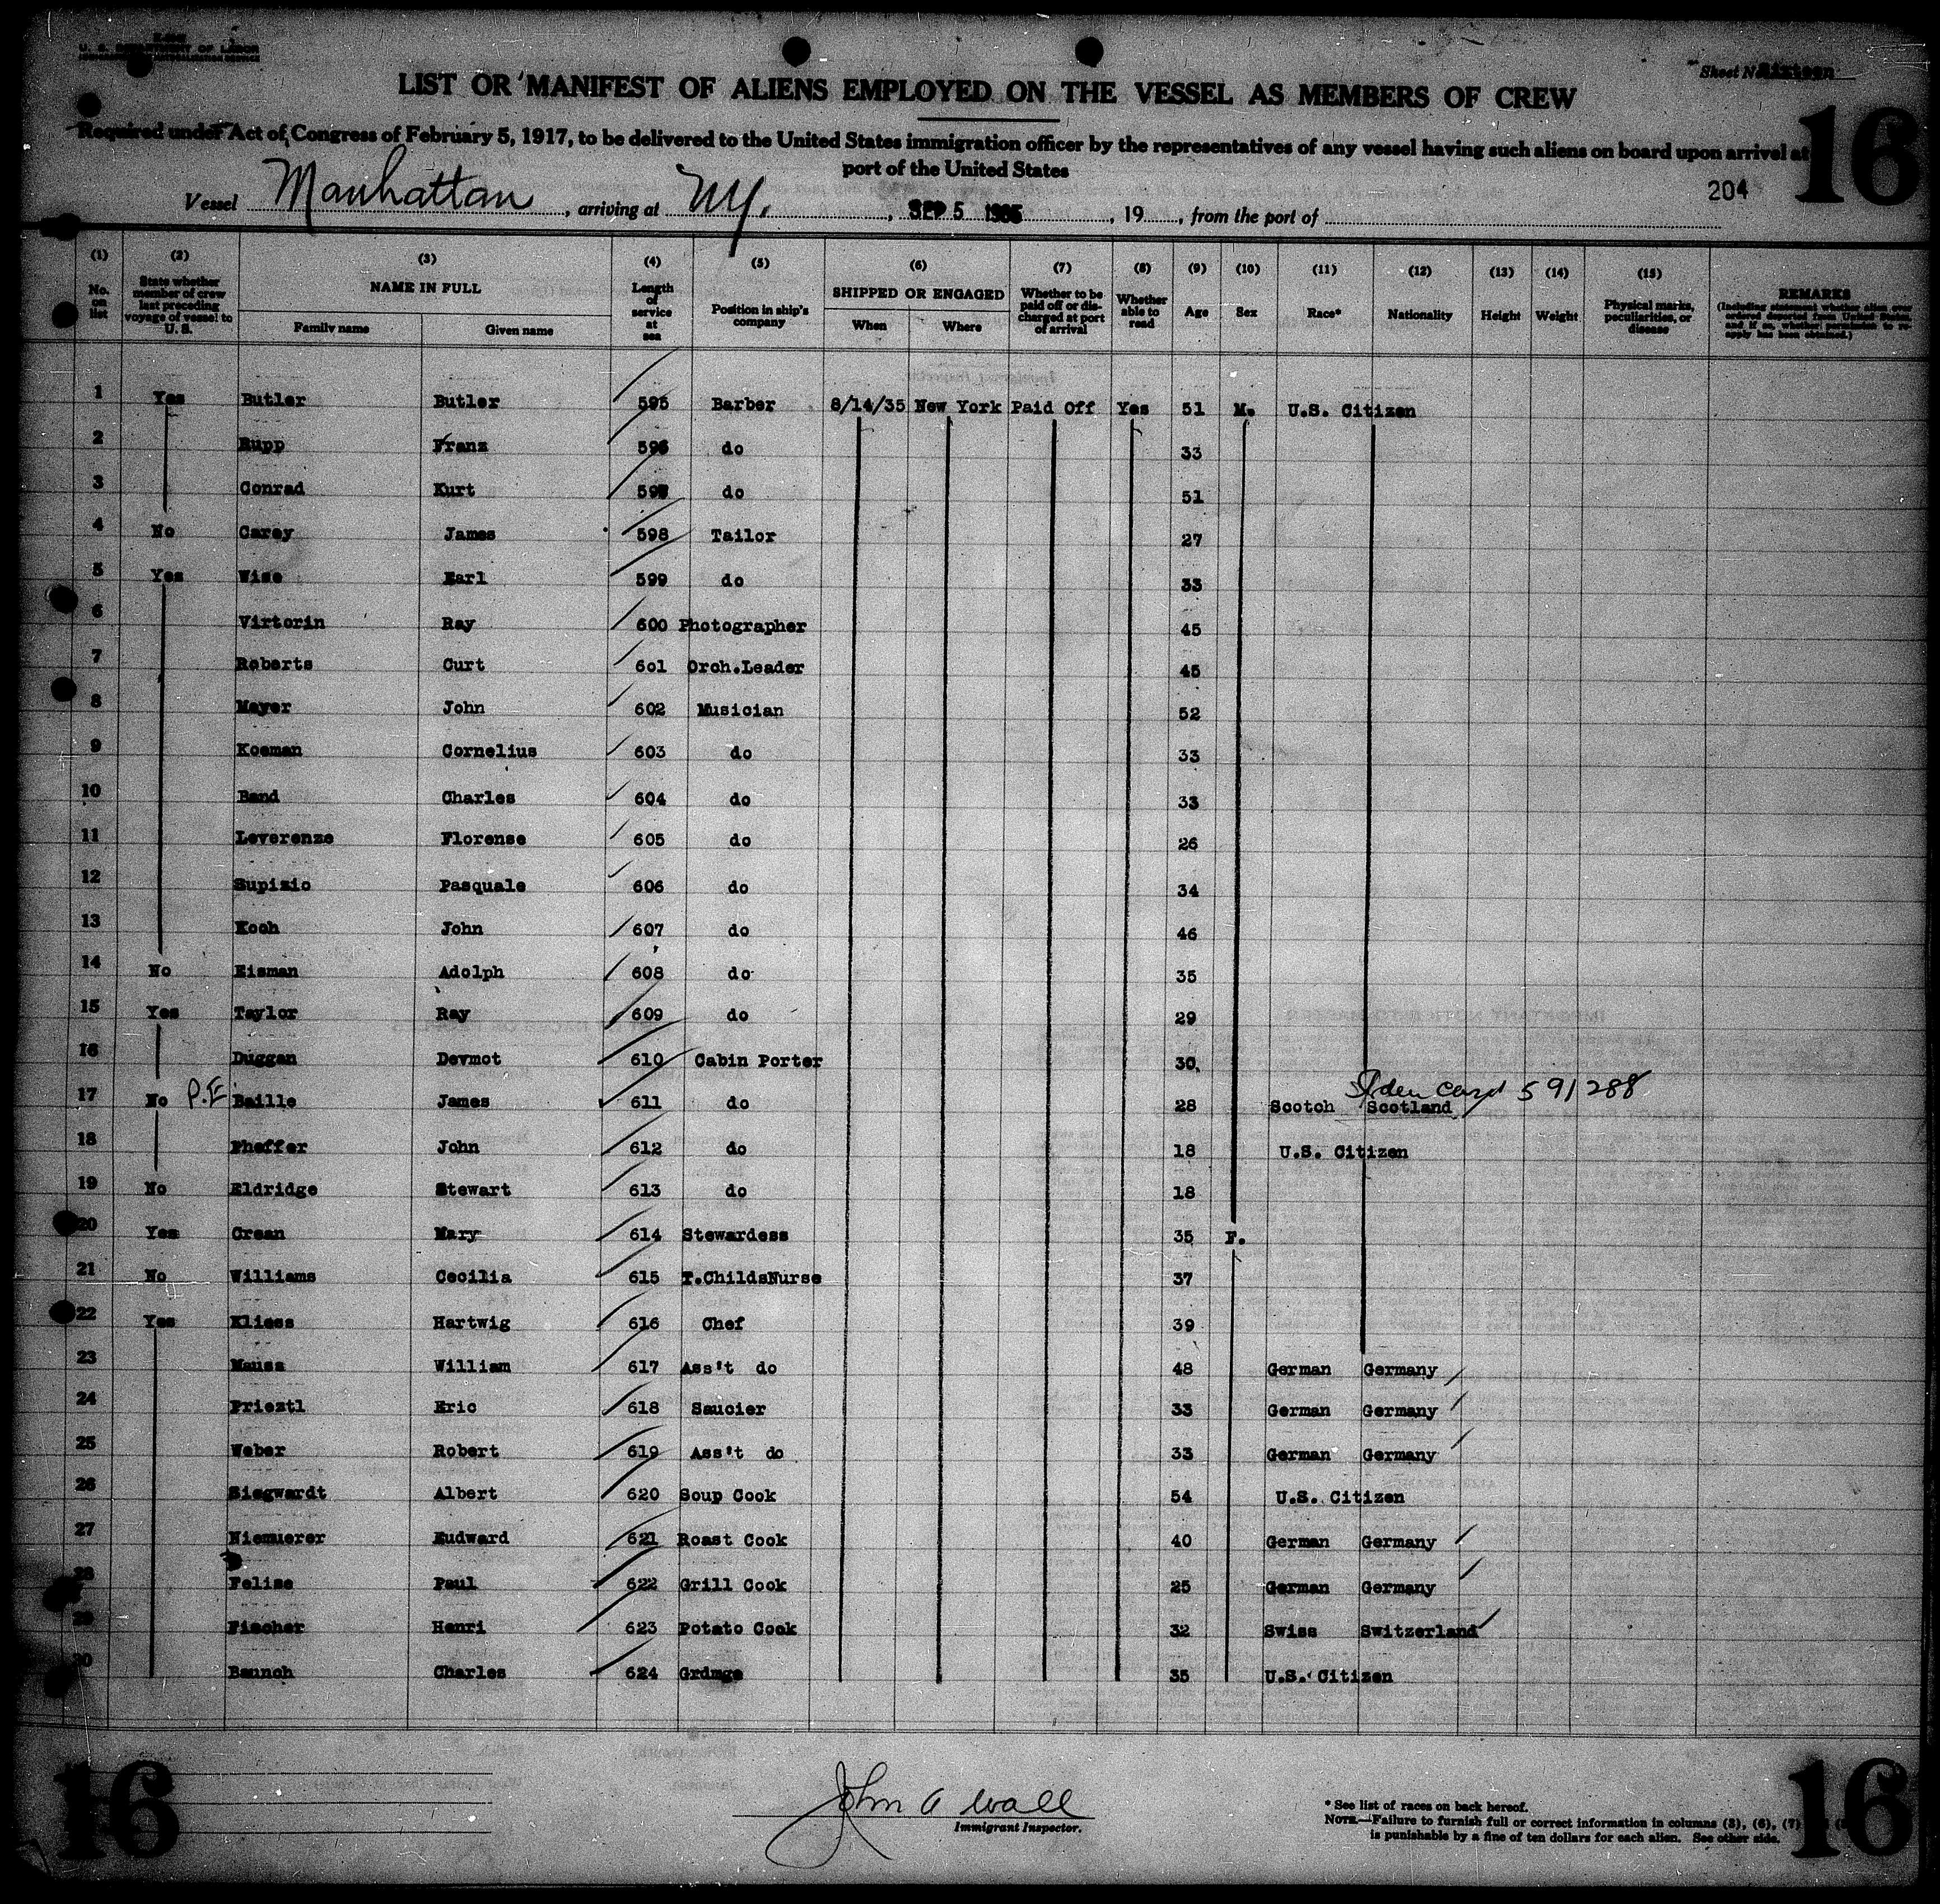 U. S. DEPARTMENT OF LABOR
Sheet No. Sixteen
LIST OR MANIFEST OF ALIENS EMPLOYED ON THE VESSEL AS MEMBERS OF CREW
16
Required under Act of Congress of February 5, 1917, to be delivered to the United States immigration officer by the representatives of any vessel having such aliens on board upon arrival at
port of the United States
204
Vessel Manhattan, arriving at NY., SEP 5 1935, 19, from the port of
(1) (2) (3) (4) (5) (6) (7) (8) (9) (10) (11) (12) (13) (14) (15)
No. on list
State whether member of crew last preceding voyage of vessel to U. S.
NAME IN FULL
Family name Given name
Length of service at sea
Position in ship's company
SHIPPED OR ENGAGED
When Where
Whether to be paid off or discharged at port of arrival
Whether able to read
Age Sex Race* Nationality Height Weight
Physical marks, peculiarities, or disease
REMARKS
(Including statement whether alien ever ordered deported from United States and if so, whether permission to reapply has been obtained.)
1 Yes Butler Butler 595 Barber 8/14/35 New York Paid Off Yes 51 M. U.S. Citizen
2 Rupp Franz 596 do 33
3 Conrad Kurt 597 do 51
4 No Carey James 598 Tailor 27
5 Yes Wise Earl 599 do 33
6 Virtorin Ray 600 Photographer 45
7 Roberts Curt 6o1 Orch.Leader 45
8 Mayer John 602 Musician 52
9 Koeman Cornelius 603 do 33
10 Band Charles 604 do 33
11 Leverenze Florense 605 do 26
12 Supizio Pasquale 606 do 34
13 Kooh John 607 do 46
14 No Eisman Adolph 608 do 35
15 Yes Taylor Ray 609 do 29
16 Duggan Devmot 610 Cabin Porter 30
17 No P.E Baille James 611 do 28 Scotch Scotland Iden Card 591288
18 Pheffer John 612 do 18 U.S. Citizen
19 No Eldridge Stewart 613 do 18
20 Yes Crean Mary 614 Stewardess 35 F.
21 No Williams Cecilia 615 T.ChildsNurse 37
22 Yes Kliess Hartwig 616 Chef 39
23 Mauss William 617 Ass't do 48 German Germany
24 Priestl Eric 618 Saucier 33 German Germany
25 Weber Robert 619 Ass't do 33 German Germany
26 Siegwardt Albert 620 Soup Cook 54 U.S. Citizen
27 Niemuerer Eudward 621 Roast Cook 40 German Germany
28 Felise Paul 622 Grill Cook 25 German Germany
29 Fischer Henri 623 Potato Cook 32 Swiss Switzerland
30 Baunch Charles 624 Grdmge 35 U.S. Citizen
16
John A Wall
Immigrant Inspector.
* See list of races on back hereof.
NOTE.—Failure to furnish full or correct information in columns (3), (6), (7)
is punishable by a fine of ten dollars for each alien. See other side.
16